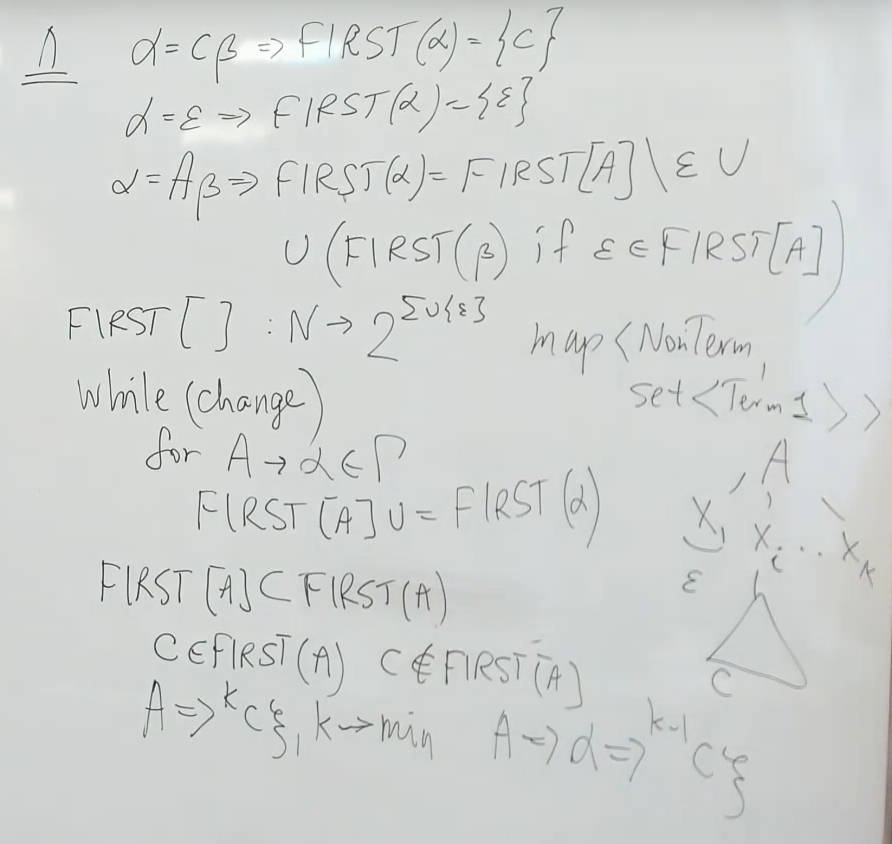 1 α = cβ => FIRST(α) = {c}
α = ε => FIRST(α) = {ε}
α = Aβ => FIRST(α) = FIRST[A] \ ε ∪
∪ (FIRST(β) if ε ∈ FIRST[A])
FIRST[ ] : N → 2^{Σ∪{ε}}
map<NonTerm,
set<Term1>>
while (change)
for A → α ∈ Γ
FIRST[A] ∪= FIRST(α)
FIRST[A] ⊂ FIRST(A)
c ∈ FIRST(A) c ∉ FIRST[A]
A =>^k cξ, k → min A => α =>^{k-1} cξ
A
X₁ X_i ... X_k
ε
c